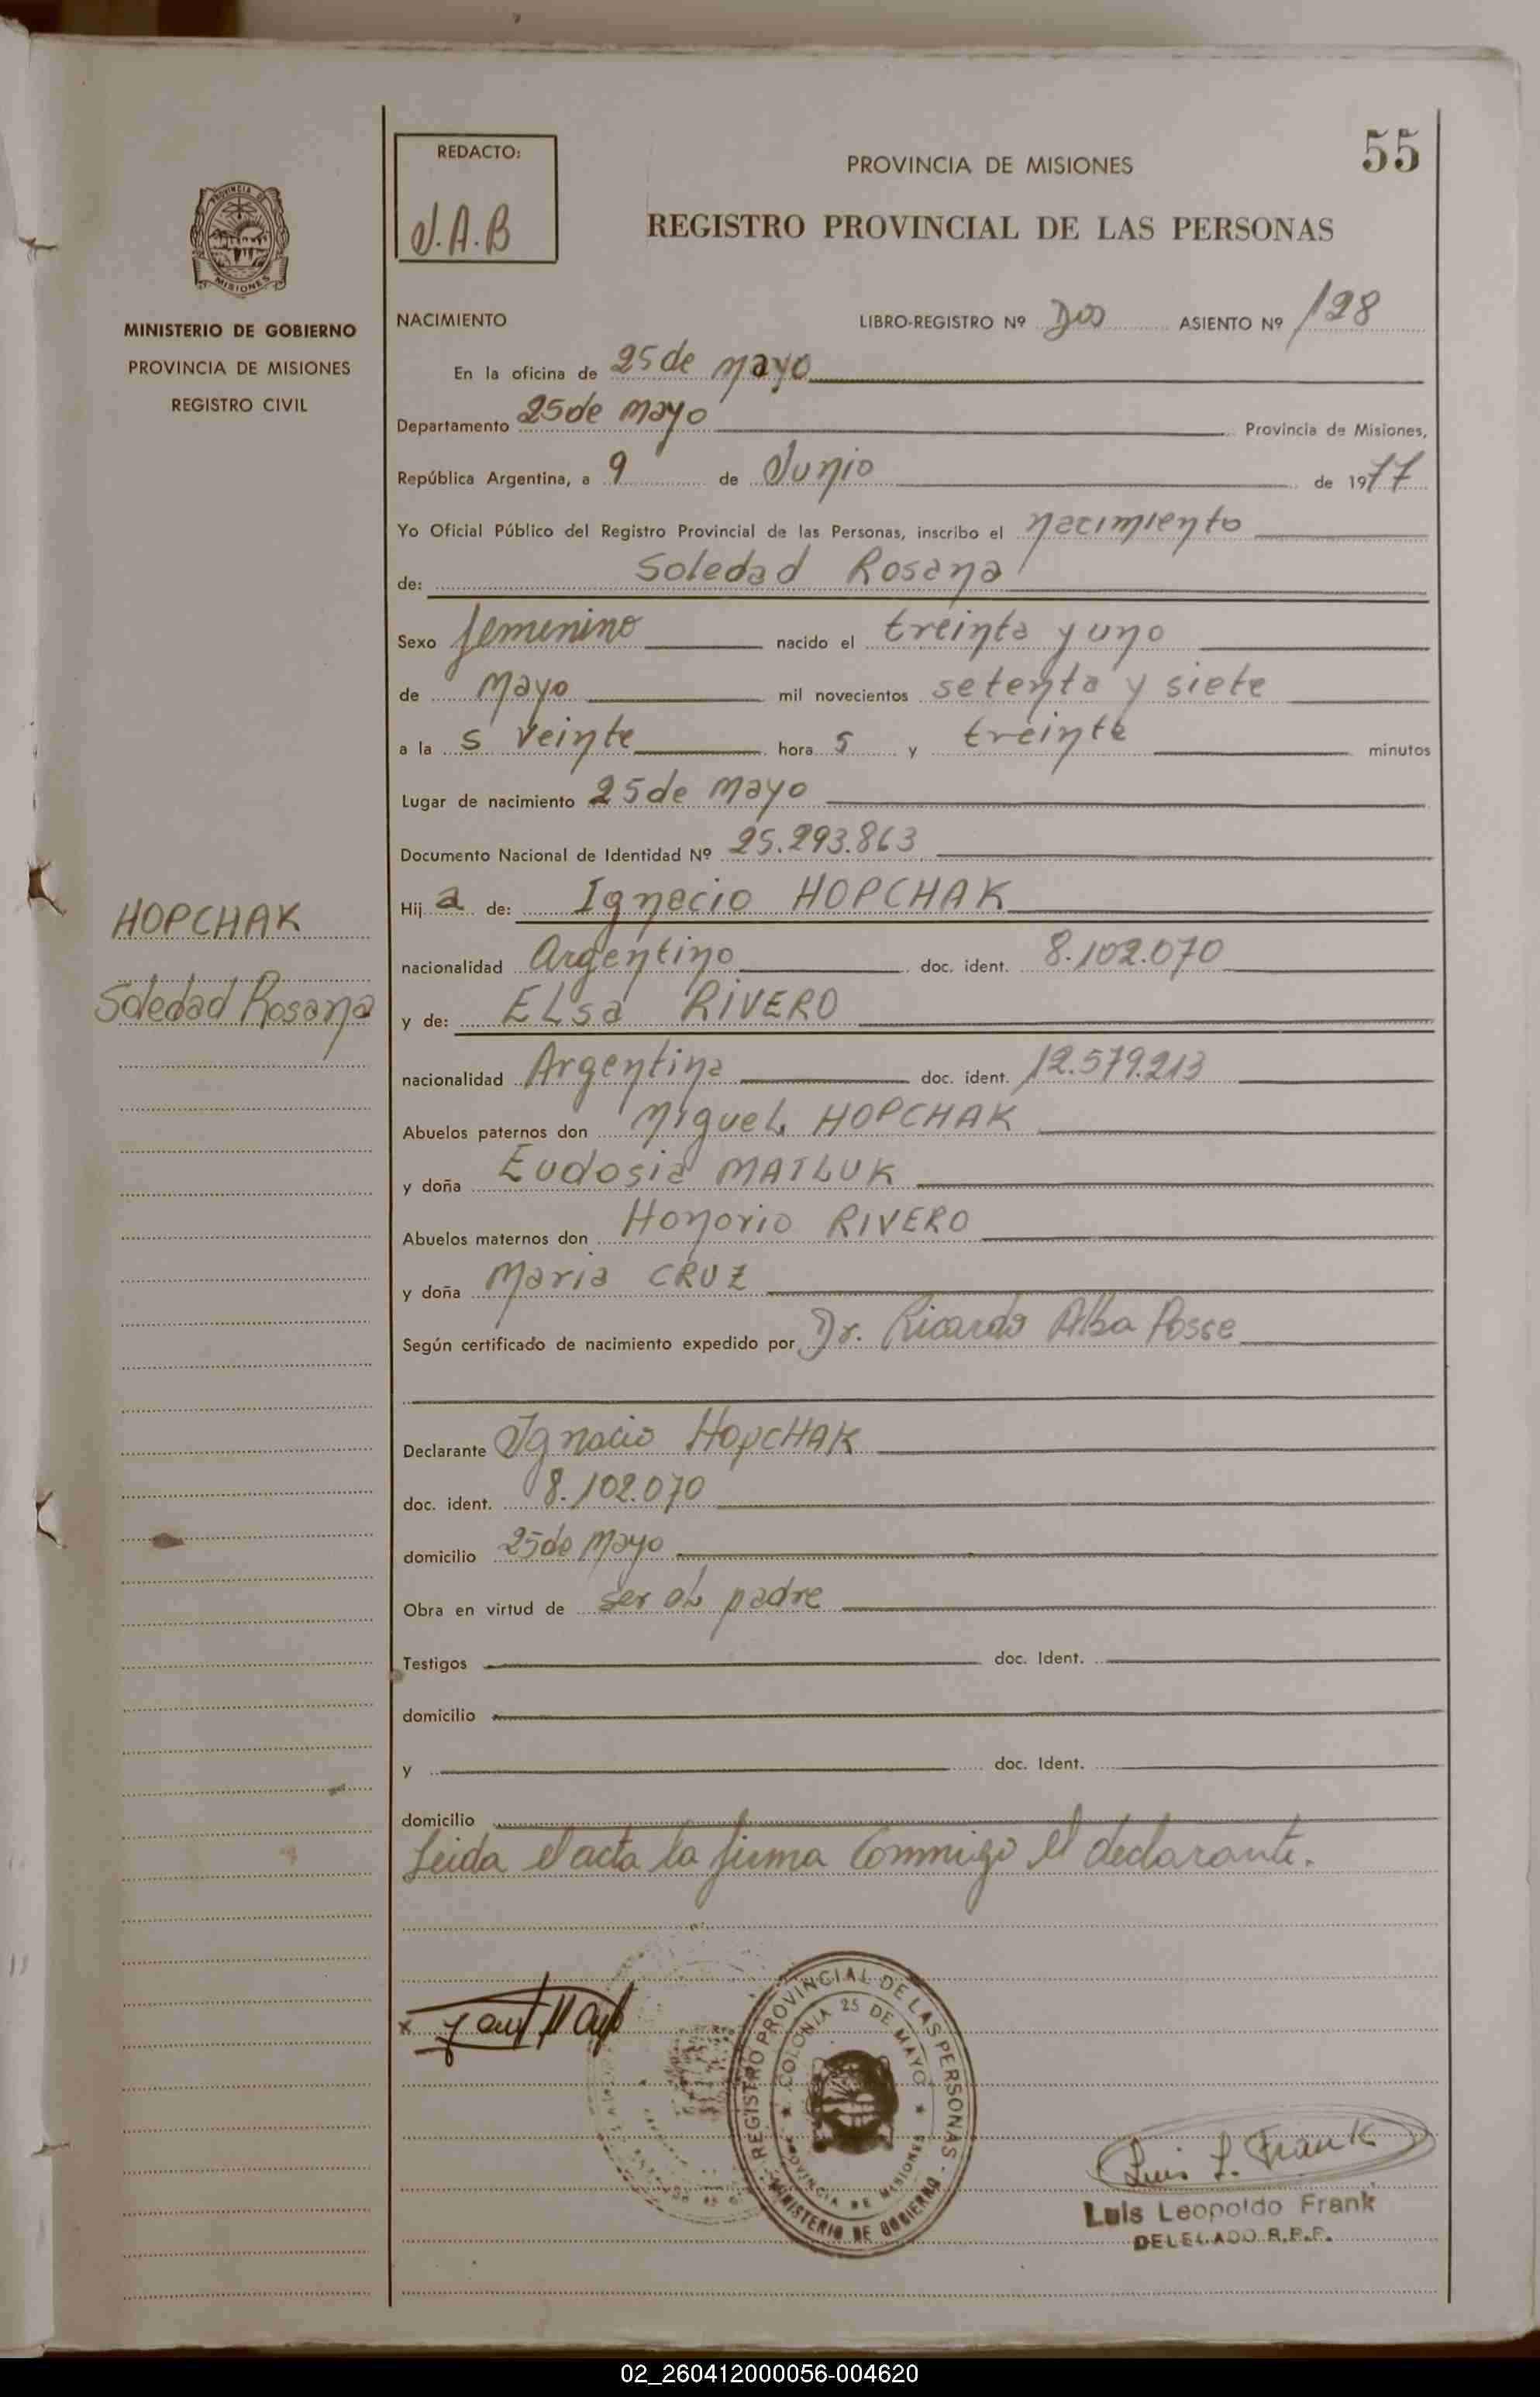 55
REDACTO:
J.A.B
PROVINCIA DE MISIONES
REGISTRO PROVINCIAL DE LAS PERSONAS
PROVINCIA DE
MISIONES
MINISTERIO DE GOBIERNO
PROVINCIA DE MISIONES
REGISTRO CIVIL
NACIMIENTO LIBRO-REGISTRO Nº Dos ASIENTO Nº 128
En la oficina de 25 de mayo
Departamento 25 de mayo Provincia de Misiones,
República Argentina, a 9 de Junio de 1977
Yo Oficial Público del Registro Provincial de las Personas, inscribo el nacimiento
de: Soledad Rosana
Sexo femenino nacido el treinta y uno
de Mayo mil novecientos setenta y siete
a la s veinte hora s y treinta minutos
Lugar de nacimiento 25 de mayo
Documento Nacional de Identidad Nº 25.293.863
Hij a de: Ignacio HOPCHAK
HOPCHAK
Soledad Rosana
nacionalidad Argentino doc. ident. 8.102.070
y de: ELsa RIVERO
nacionalidad Argentina doc. ident. 12.579.213
Abuelos paternos don Miguel HOPCHAK
y doña Eudosia MATLUK
Abuelos maternos don Honorio RIVERO
y doña Maria CRUZ
Según certificado de nacimiento expedido por Dr. Ricardo Alba Posse
Declarante Ignacio HopCHAK
doc. ident. 8.102.070
domicilio 25 de Mayo
Obra en virtud de ser el padre
Testigos doc. Ident.
domicilio
y doc. Ident.
domicilio
Leida el acta la firma Conmigo el declarante.
REGISTRO PROVINCIAL DE LAS PERSONAS
COLONIA 25 DE MAYO
PROVINCIA DE MISIONES
MINISTERIO DE GOBIERNO
Luis L. Frank
Luis Leopoldo Frank
DELEGADO R.P.P.
02_260412000056-004620